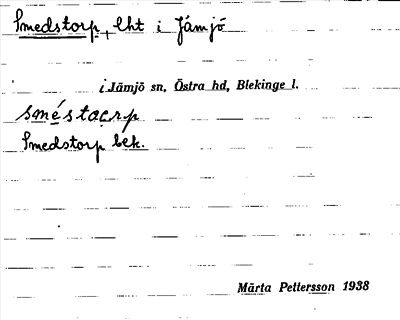 Smedstorp, lht i Jämjö
i Jämjö sn, Östra hd, Blekinge l.
sméstacrp
Smedstorp bek.
Märta Pettersson 1938